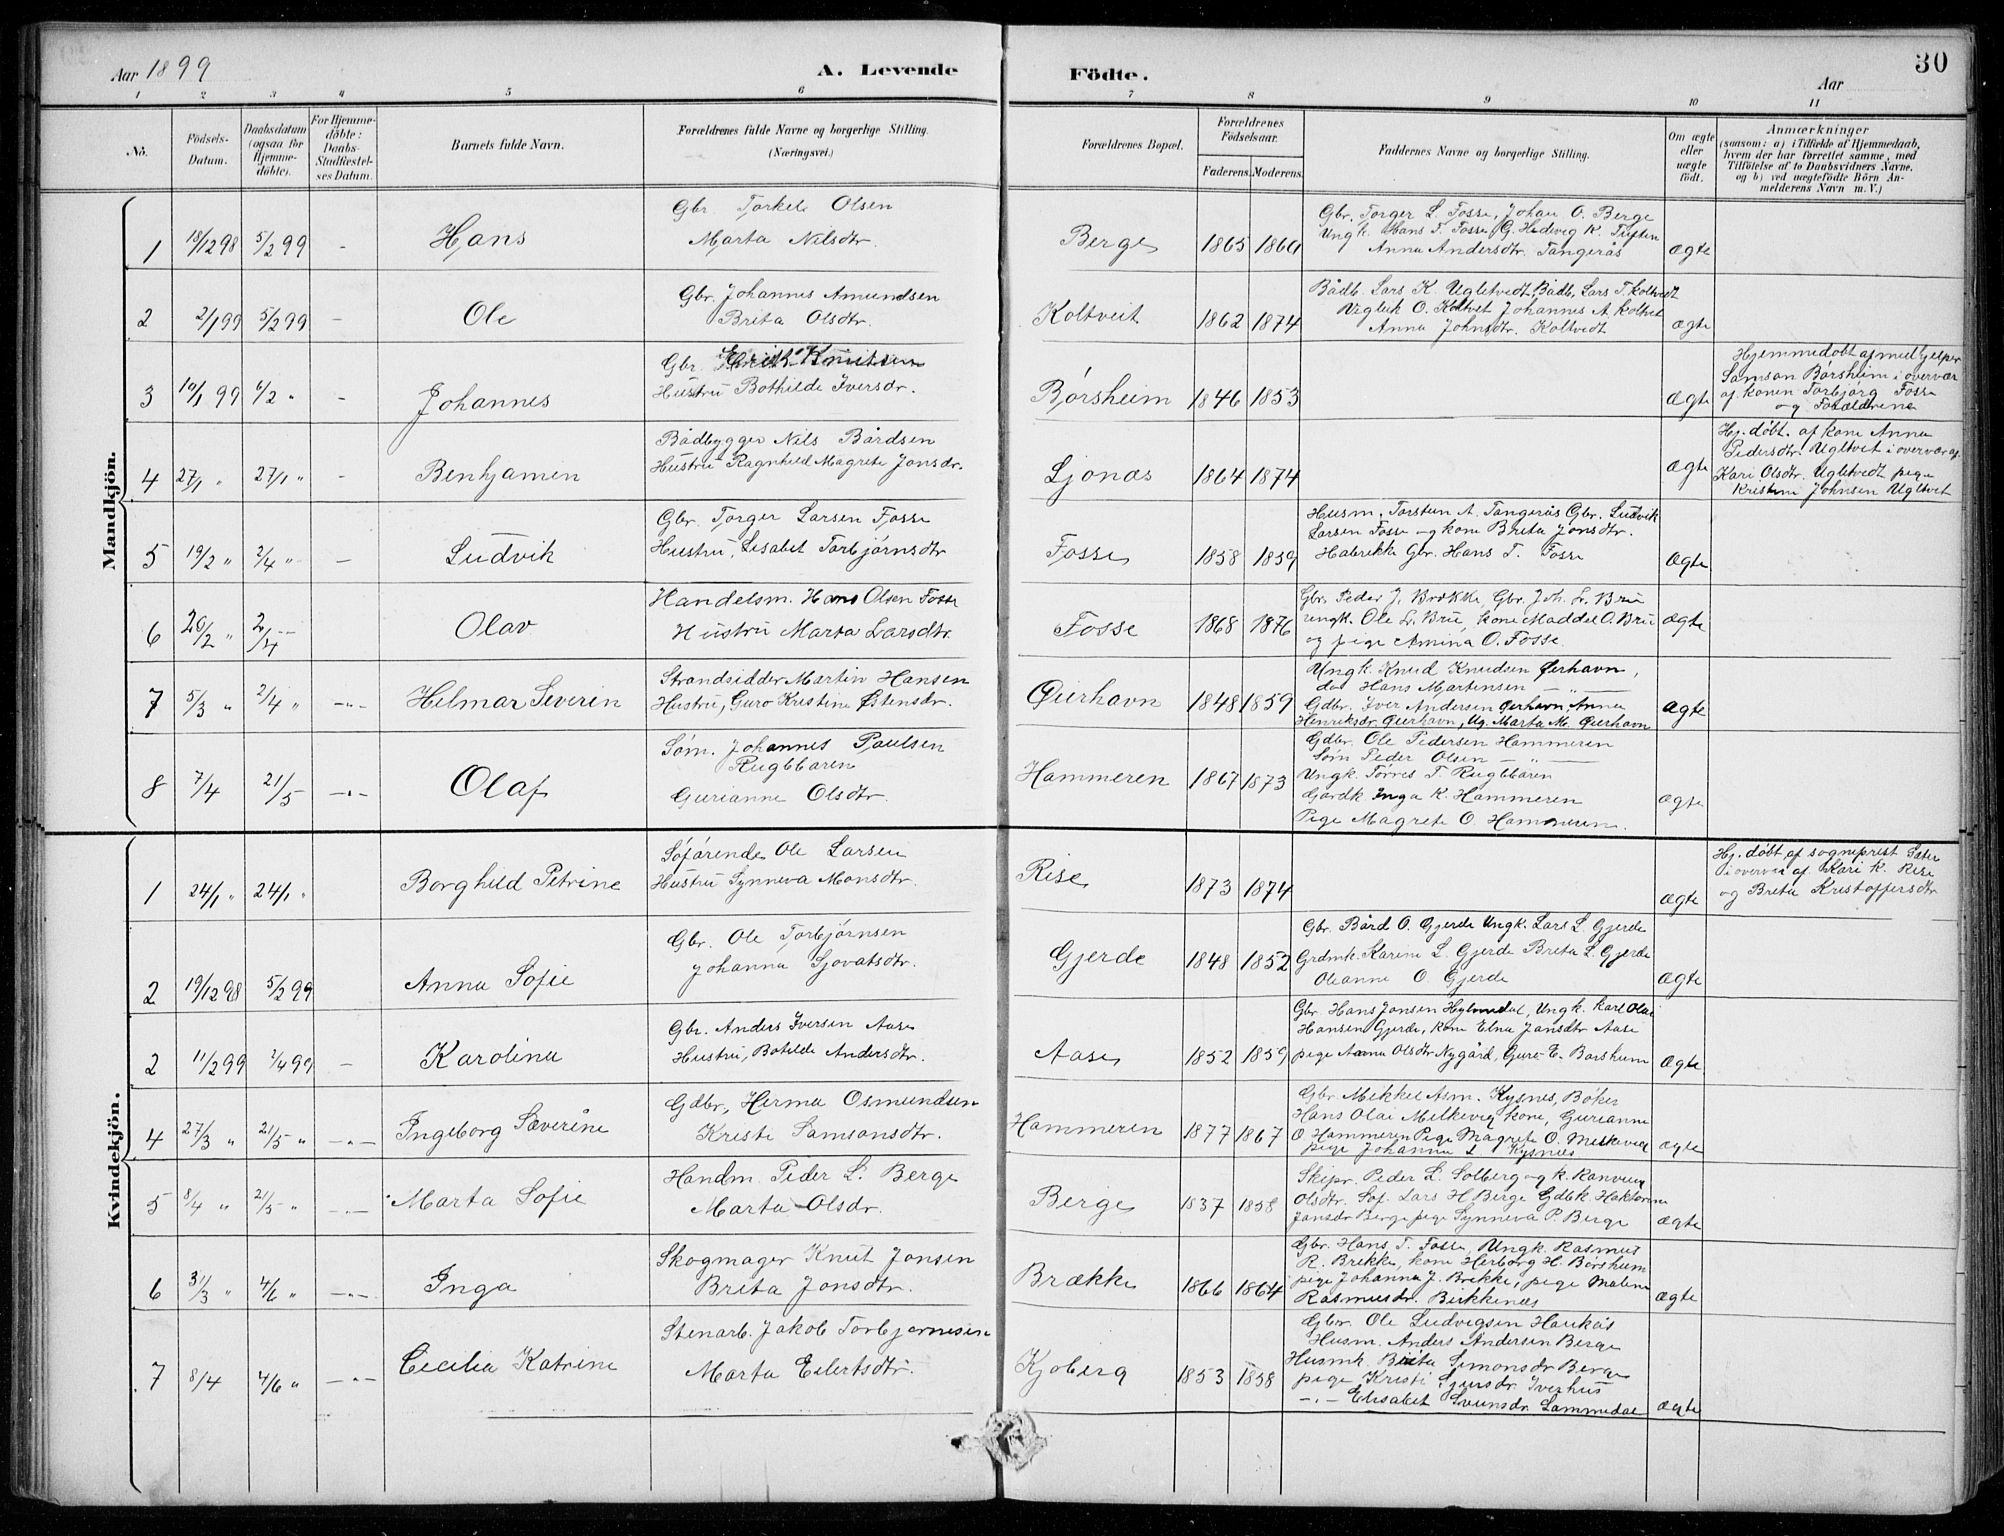 Aar 1899
A. Levende
Födte.
Aar
30
1 2 3 4 5 6 7 8 9 10 11
No.
Födsels-Datum.
Daabsdatum (ogsaa for Hjemme-döbte).
For Hjemme-döbte: Daabs-Stadfæstel-ses Datum.
Barnets fulde Navn.
Forældrenes fulde Navne og borgerlige Stilling.
(Næringsvei.)
Forældrenes Bopæl.
Forældrenes Födselsaar.
Faderens. Moderens.
Faddernes Navne og borgerlige Stilling.
Om ægte eller uægte födt.
Anmærkninger
(saasom: a) i Tilfælde af Hjemmedaab,
hvem der har forrettet samme, med
Tilföielse af to Daabsvidners Navne.
og b) ved uægtefödte Börn An-
melderens Navn m. V.)
Mandkjön.
1 18/12 98 5/2 99 - Hans
Gbr. Torkel Olsen
Marta Nilsdtr.
Berge 1865 1866
Gbr. Torger L. Fosse, Johan O. Berge
Ungk. Hans T. Fosse, G. Hedvig K. Triften
Anna Andersdtr. Tangerås
ægte
2 2/1 99 5/2 99 - Ole
Gbr. Johannes Amundsen
Brita Olsdtr.
Koltveit 1862 1874
Bådb. Lars K. Ugletvedt, Bådb. Lars T. Koltvedt
Vigleik O. Koltvet Johannes A. Koltvet
Anna Johnsdtr. Koltvedt
ægte
3 10/1 99 6/2 " - Johannes
Gbr. Erik Knutsen
Hustru Bothilde Iversdr.
Børsheim 1846 1853
ægte
Hjemmedøbt af medhjelper
Samson Børsheim i overvær
af konen Torbjørg Fosse
og Forældrene
4 27/1 " 27/1 " - Benhjamin
Bådbygger Nils Bårdsen
Hustru Ragnhild Magrete Jonsdr.
Ljonæs 1864 1874
ægte
Hj. døbt. af kone Anna
Pedersdtr. Ugltvet i overvær af
Kari Olsdtr. Ugletvedt pige
Kristine Johnsen Ugltvet
5 19/2 " 2/4 " - Ludvik
Gbr. Torger Larsen Fosse
Hustru, Lisabet Torbjørnsdtr
Fosse 1858 1859
Husm. Torstein A. Tangerås Gbr. Ludvik
Larsen Fosse og kone Brita Jonsdtr.
Halrekke Gbr. Hans T. Fosse
ægte
6 26/2 " 2/4 Olav
Handelsm. Hans Olsen Fosse
Hustru Marta Larsdtr.
Fosse 1868 1876
Gbr. Peder J. Brække, Gbr. Joh. L. Bru
ungk. Ole L. Bru, kone Maddel O. Bru
og pige Amina O. Fosse
ægte
7 5/3 " 2/4 " -"- Helmar Severin
Strandsidder Martin Hansen
Hustru, Guro Kristine Østensdr.
Øierhavn 1848 1859
Ungk. Knud Knudsen Øierhavn,
do Hans Martensen - " -
Gdbr. Iver Andersen Øierhavn, Anna
Henriksdr. Øierhavn, Ug. Marta M. Øierhavn
ægte
8 7/4 21/5 -"- Olaf
Søm. Johannes Paulsen
Rugbbaren
Gurianne Olsdtr.
Hammeren 1867 1873
Gdbr. Ole Pedersen Hammeren
Søm Peder Olsen - " -
Ungk. Tørres T. Rugbbaren
Gårdk. Inga K. Hammeren
Pige Magrete O. Hammeren.
ægte
Kvindekjön.
1 24/1 " 24/1 " Borghild Petrine
Søfarende Ole Larsen
Hustru Synneva Monsdtr.
Rise 1873 1874
ægte
Hj. døbt af sogneprest Sæter
i overvær af Kari K. Rise
og Brita Kristoffersdtr
2 19/12 98 5/2 99 Anna Sofie
Gbr. Ole Torbjørnsen
Johanna Sjovatsdtr.
Gjerde 1848 1852
Gbr. Bård O. Gjerde Ungk. Lars L. Gjerde
Grdmk. Karine L. Gjerde Brita L. Gjerde
Oleanne O. Gjerde
ægte
2 11/2 99 2/4 99 - Karolina
Gbr. Anders Iversen Aase
Hustru, Botilde Andersdtr.
Aase 1852 1859
Gbr. Hans Jonsen Hylmedal, Ungk. Karl Olai
Hansen Gjerde, kone Elna Jansdtr Aase
pige Anna Olsdtr Nygård, Guro E. Borsheim
ægte
4 27/3 " 21/5 " -"- Ingeborg Sæverine
Gdbr, Herma Osmundsen
Kristi Samsonsdtr.
Hammeren 1877 1867
Gbr. Mekkel Asm. Kysnes, Bøker
Hans Olai Melkevig kone, Gurianne
O. Hammeren Pige Magrete O. Melkevig
pige Johanna L Kysnes
ægte
5 8/4 " 21/5 " -"- Marta Sofie
Handm. Peder L. Berge
Marta Olsdr.
Berge 1837 1858
Skipr. Peder L. Solberg og k. Ranveig
Olsdtr. Søf. Lars H. Berge Gdbk. Haktorine
Jansdr Berge pige Synneva P. Berge
ægte
6 31/3 " 4/6 " -"- Inga
Skogmager Knut Jonsen
Brita Jonsdtr.
Brække 1866 1864
Gbr. Hans T. Fosse, Ungk. Rasmus
R. Brekke, kone Herborg H. Borsheim
pige Johanna J. Brekke, pige Malene
Rasmusdr. Birkkenæs
ægte
7 8/4 4/6 " -"- Cecilia Katrine
Stenarb. Jakob Torbjørnsen
Marta Eilertsdtr.
Kjoberg 1853 1858
Gbr. Ole Ludvigsen Haukås
Husm. Anders Andersen Berge
Husmk. Brita Simonsdr Berge
pige Kristi Sjursdr. Iverhus
-"- Elisabet Svensdr Lammedal
ægte